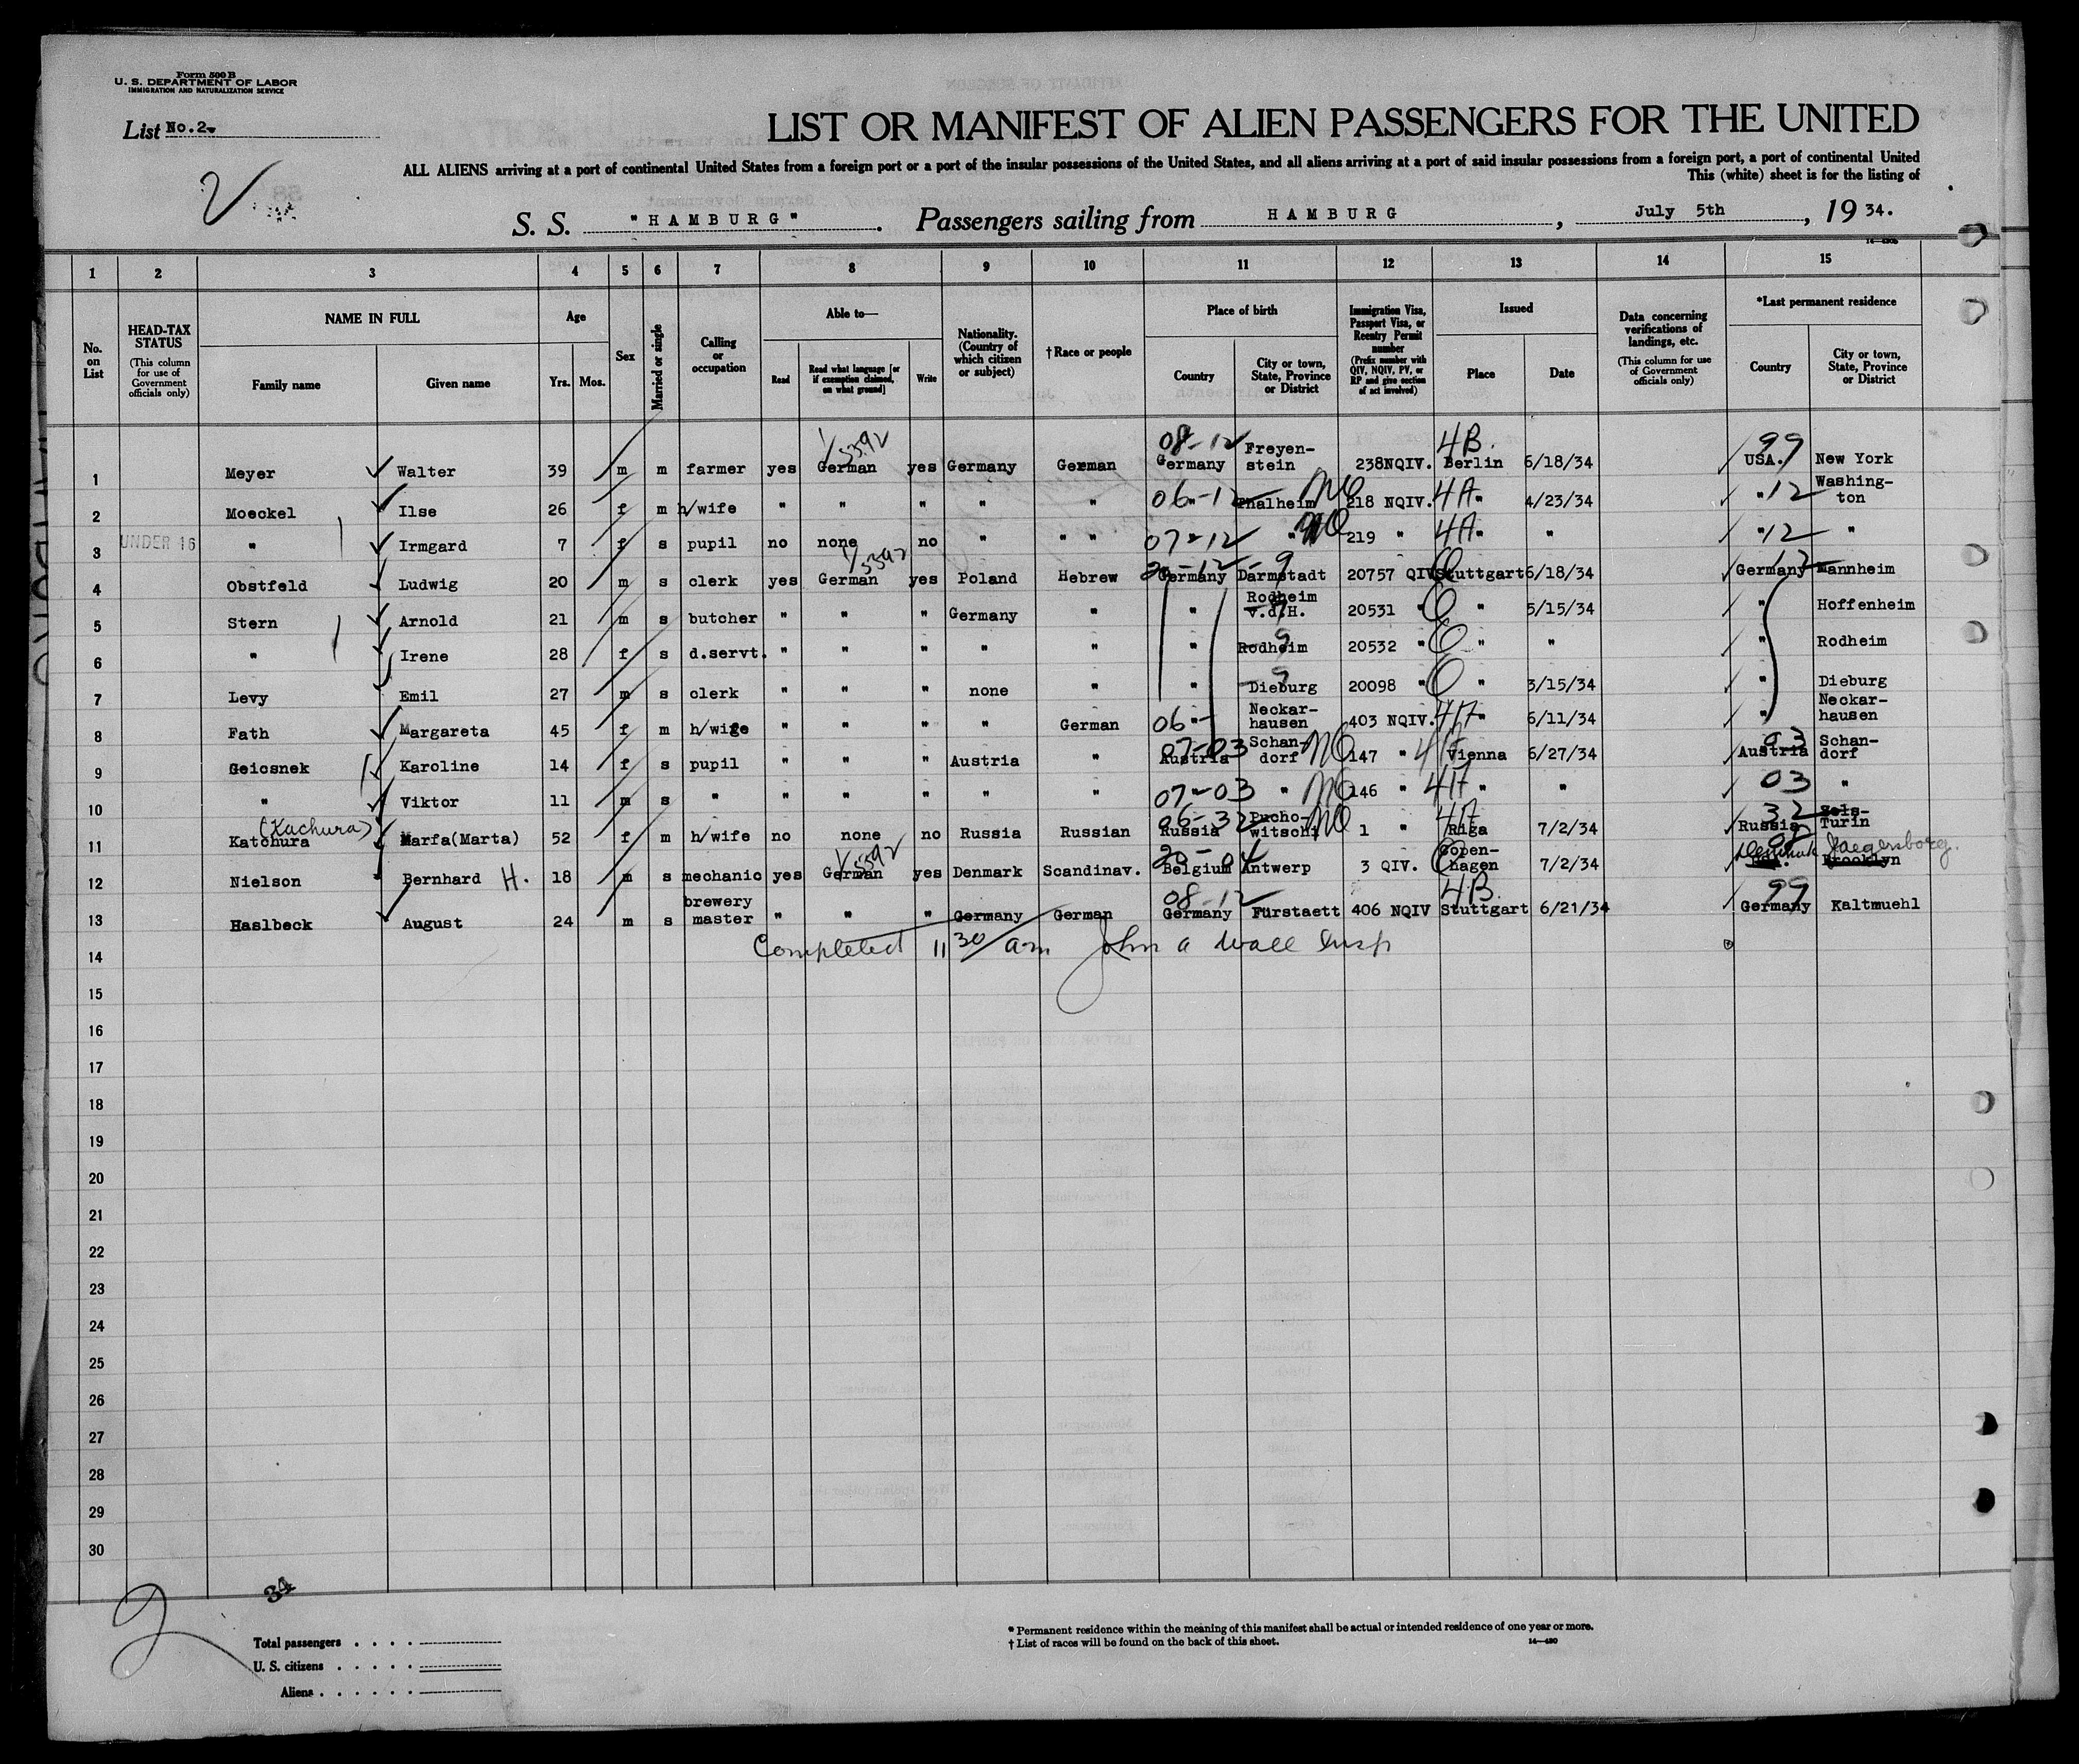 Form 500 B
U. S. DEPARTMENT OF LABOR
IMMIGRATION AND NATURALIZATION SERVICE
List No.2.
LIST OR MANIFEST OF ALIEN PASSENGERS FOR THE UNITED
ALL ALIENS arriving at a port of continental United States from a foreign port or a port of the insular possessions of the United States, and all aliens arriving at a port of said insular possessions from a foreign port, a port of continental United
This (white) sheet is for the listing of
S. S. "HAMBURG". Passengers sailing from HAMBURG, July 5th, 19 34.
1 2 3 4 5 6 7 8 9 10 11 12 13 14 15
No. on List
HEAD-TAX STATUS (This column for use of Government officials only)
NAME IN FULL Family name Given name
Age Yrs. Mos.
Sex
Married or single
Calling or occupation
Able to— Read Read what language [or if exemption claimed, on what ground] Write
Nationality. (Country of which citizen or subject)
†Race or people
Place of birth Country City or town, State, Province or District
Immigration Visa, Passport Visa, or Reentry Permit number (Prefix number with QIV, NQIV, PV, or RP and give section of act involved)
Issued Place Date
Data concerning verifications of landings, etc. (This column for use of Government officials only)
*Last permanent residence Country City or town, State, Province or District
1 Meyer Walter 39 m m farmer yes German yes Germany German 08-12 Germany Freyen-stein 238NQIV. 4B. Berlin 6/18/34 99 USA. New York
2 Moeckel Ilse 26 f m h/wife " " " " " 06-12 " Thalheim NO 218 NQIV. 4A " 4/23/34 " 12 Washing-ton
3 UNDER 16 " Irmgard 7 f s pupil no none no " " " 07-12 " " NO 219 " 4A " " " 12 "
4 Obstfeld Ludwig 20 m s clerk yes German yes Poland Hebrew Germany Darmstadt 20757 QIV Stuttgart 6/18/34 Germany 12 Mannheim
5 Stern Arnold 21 m s butcher " " " Germany " " Rodheim v.d.H. 20531 " " 5/15/34 " Hoffenheim
6 " Irene 28 f s d.servt. " " " " " " Rodheim 20532 " " " " Rodheim
7 Levy Emil 27 m s clerk " " " none " " Dieburg 20098 " " 3/15/34 " Dieburg
8 Fath Margareta 45 f m h/wige " " " " German 06- " Neckar-hausen 403 NQIV. 4A " 6/11/34 " Neckar-hausen
9 Geicsnek Karoline 14 f s pupil " " " Austria " 07-03 Austria Schan-dorf NO 147 " 4A Vienna 6/27/34 03 Austria Schan-dorf
10 " Viktor 11 m s " " " " " " 07-03 " NO 146 " 4A " " 03 "
11 Katchura (Kachura) Marfa(Marta) 52 f m h/wife no none no Russia Russian 06-32 Russia Pucho-witschi NO 1 " 4A Riga 7/2/34 32 Russia Turin
12 Nielson Bernhard H. 18 m s mechanic yes German yes Denmark Scandinav. 20-04 Belgium Antwerp 3 QIV. Copen-hagen 7/2/34 Denmark Brooklyn Jaegersborg.
13 Haslbeck August 24 m s brewery master " " " Germany German 08-12 Germany Fürstaett 406 NQIV 4B. Stuttgart 6/21/34 99 Germany Kaltmuehl
14 Completed 11 30 am John A Wall Insp
15
16
17
18
19
20
21
22
23
24
25
26
27
28
29
30
34
Total passengers
U. S. citizens
Aliens
* Permanent residence within the meaning of this manifest shall be actual or intended residence of one year or more.
† List of races will be found on the back of this sheet.
14—430